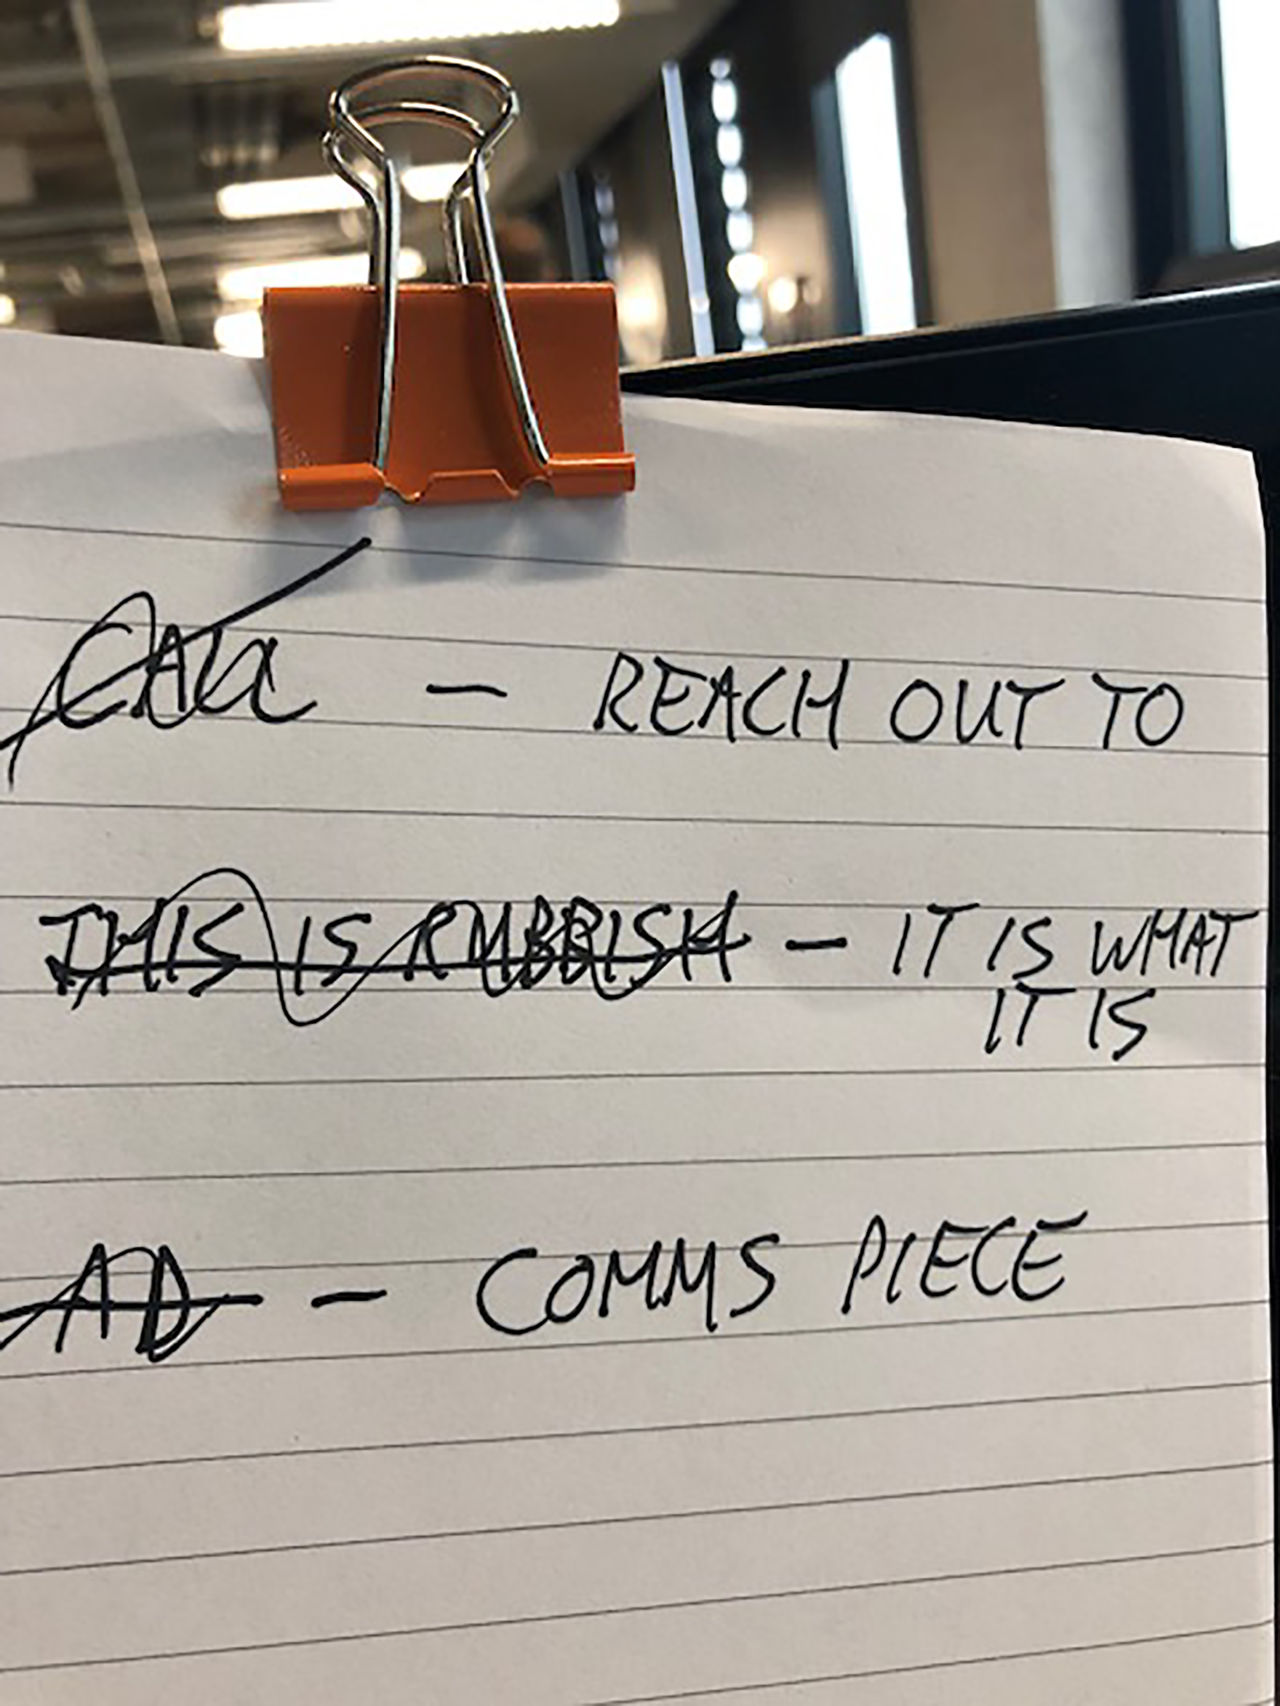 CALL - REACH OUT TO
THIS IS RUBBISH - IT IS WHAT
IT IS
AD - COMMS PIECE